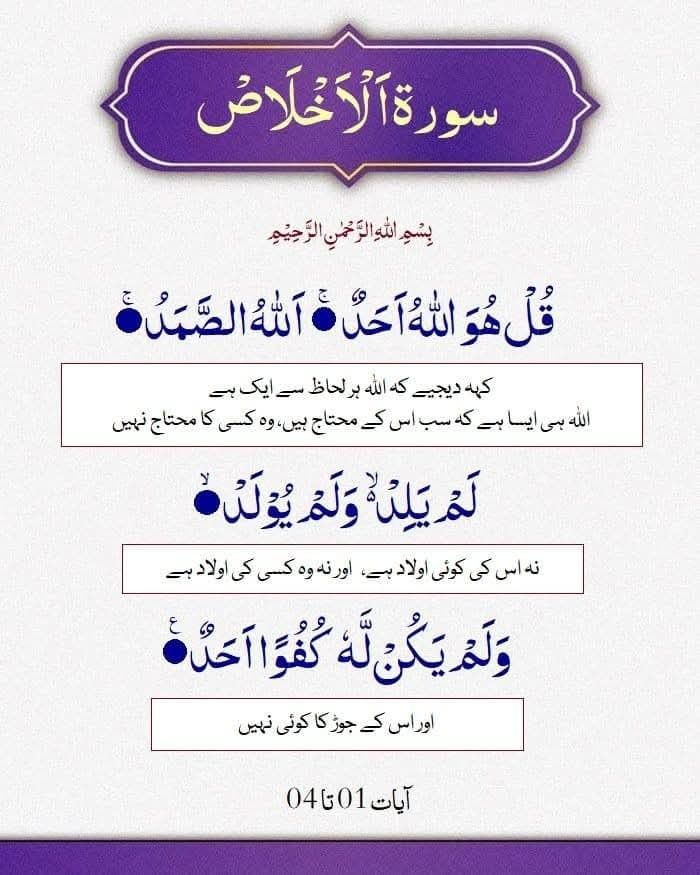 سورة اَلْاَخْلَاصْ
بِسْمِ اللّٰهِ الرَّحْمٰنِ الرَّحِيْمِ
قُلْ هُوَ اللّٰهُ اَحَدٌ ۚ اَللّٰهُ الصَّمَدُ ۚ
کہہ دیجیے کہ اللہ ہر لحاظ سے ایک ہے
اللہ ہی ایسا ہے کہ سب اس کے محتاج ہیں، وہ کسی کا محتاج نہیں
لَمْ يَلِدْ ۙ۬ وَلَمْ يُوْلَدْ ۙ
نہ اس کی کوئی اولاد ہے، اور نہ وہ کسی کی اولاد ہے
وَلَمْ يَكُنْ لَّهٗ كُفُوًا اَحَدٌ ع
اور اس کے جوڑ کا کوئی نہیں
آیات 01 تا 04